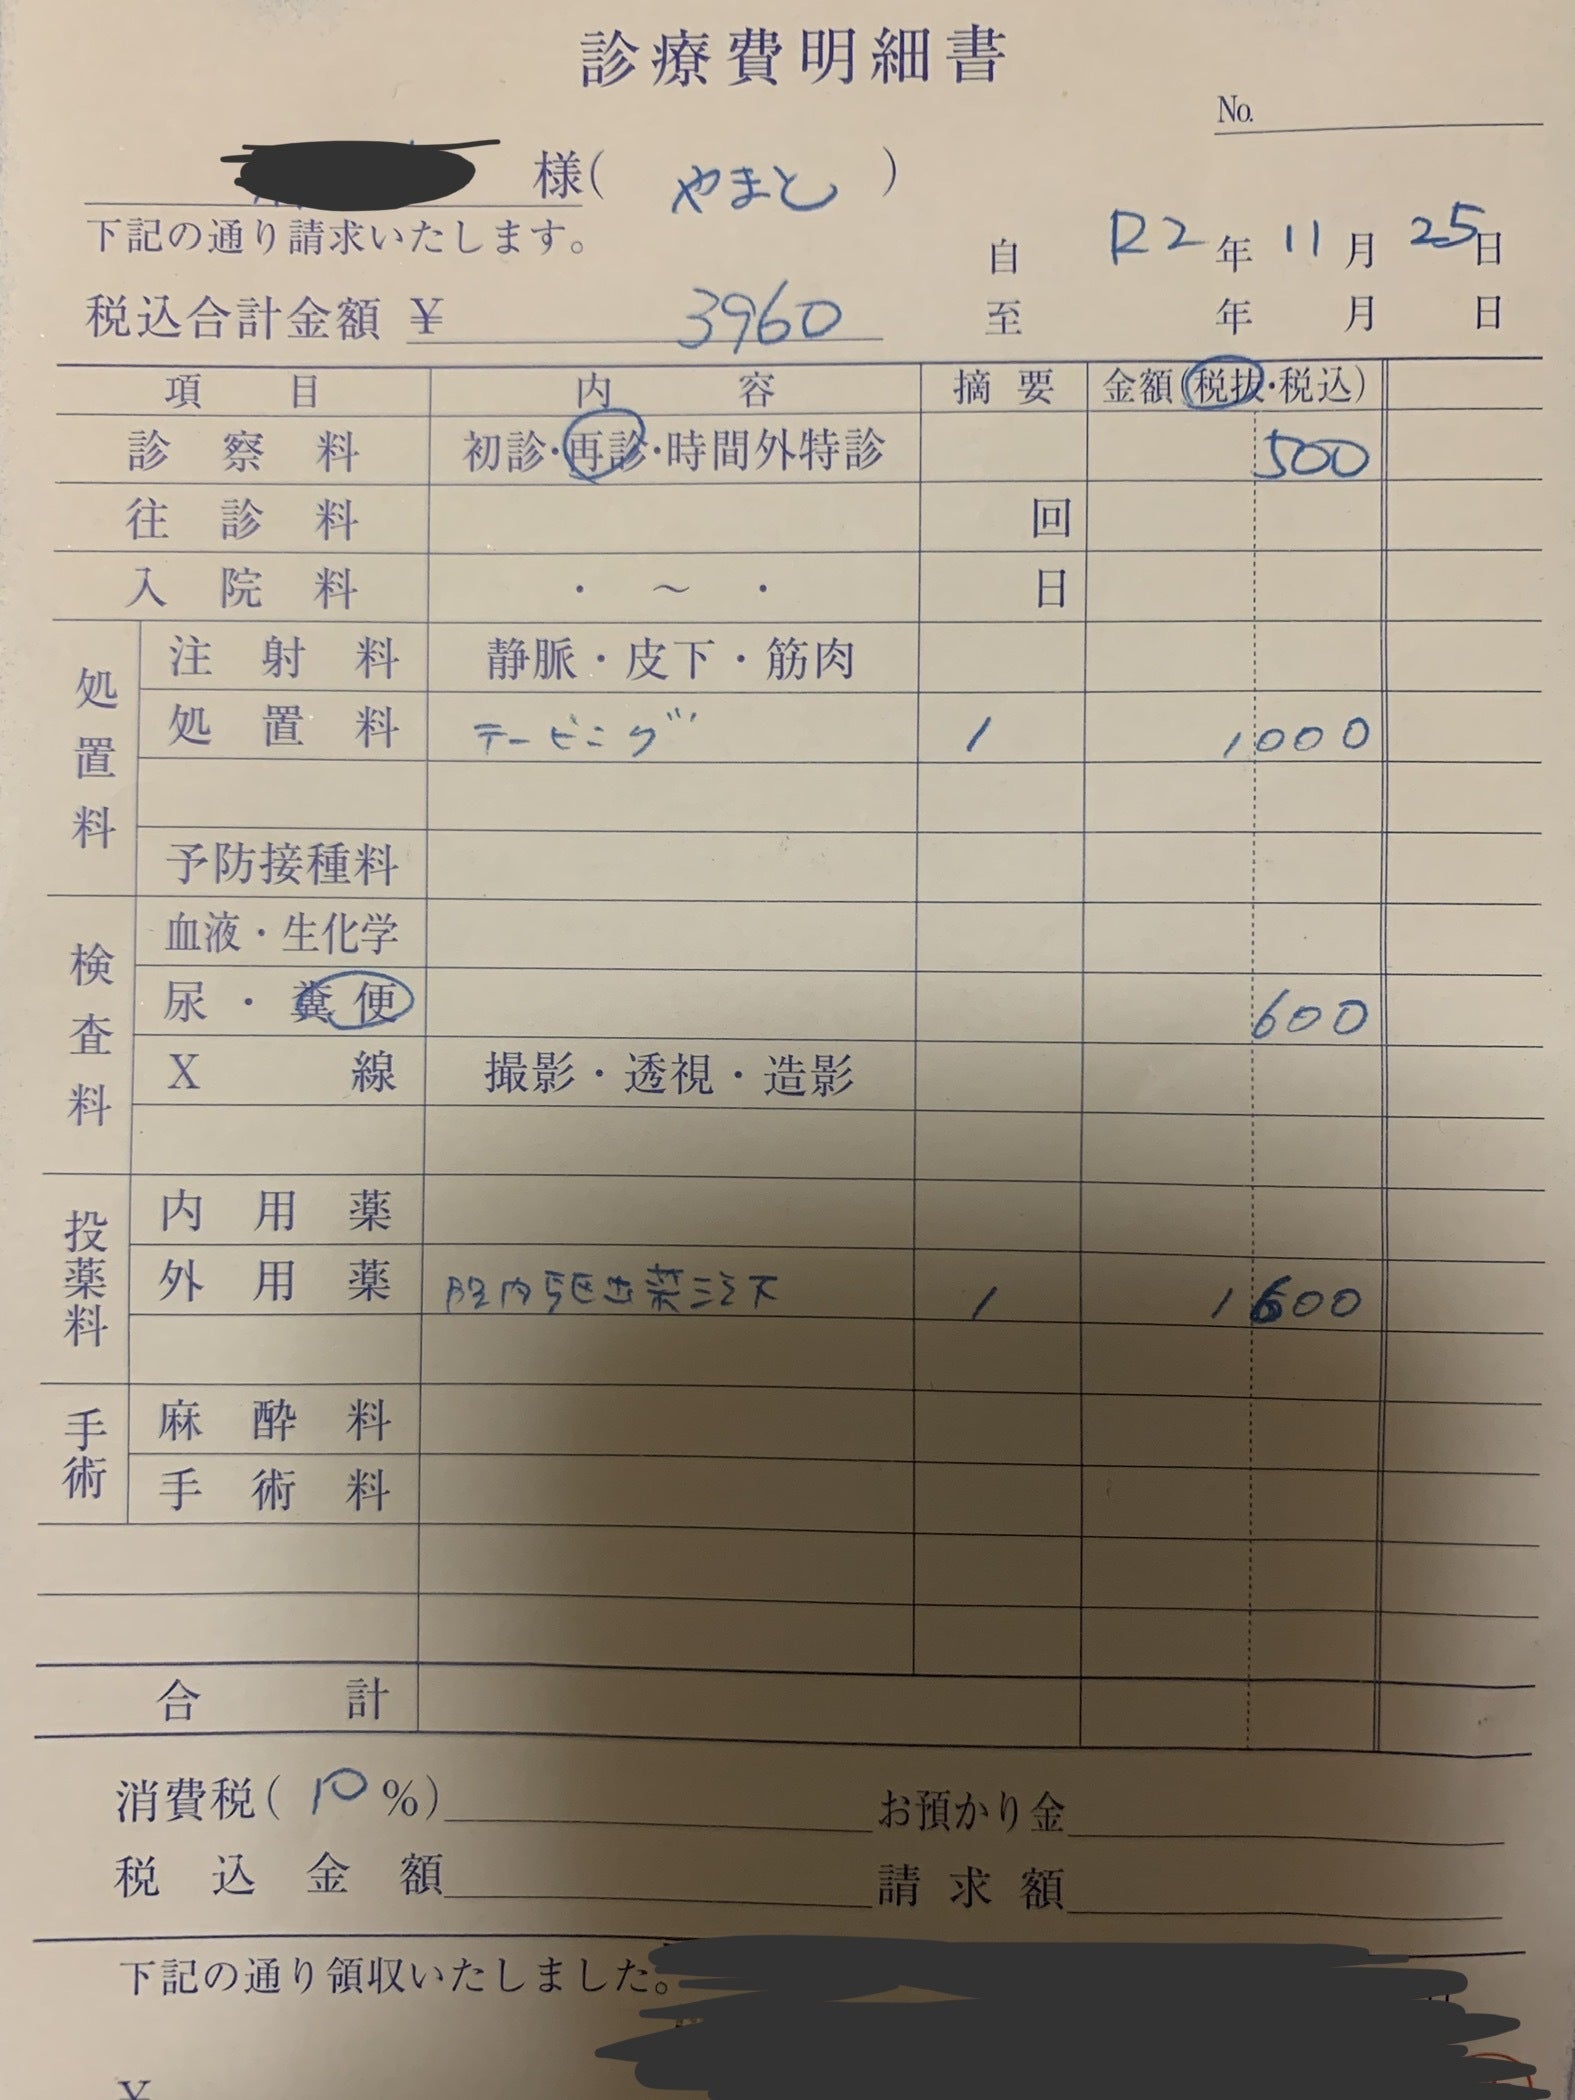 診療費明細書
No.
様( やまと )
下記の通り請求いたします。
自 R2年 11月 25日
税込合計金額 ¥ 3960
至 年 月 日
項目 内容 摘要 金額(税抜・税込)
診察料 初診・再診・時間外特診 500
往診料 回
入院料 ・ ～ ・ 日
処置料
注射料 静脈・皮下・筋肉
処置料 テーピング 1 1000
予防接種料
検査料
血液・生化学
尿・糞便 600
X線 撮影・透視・造影
投薬料
内用薬
外用薬 腔内駆虫薬注下 1 1600
手術
麻酔料
手術料
合計
消費税( 10 %) お預かり金
税込金額 請求額
下記の通り領収いたしました。
¥